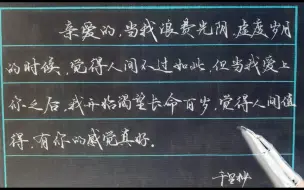 亲爱的,当我浪费光阴,虚度岁月
的时候,觉得人间不过如此,但当我爱上
你之后,我开始渴望长命百岁,觉得人间值
得,有你的感觉真好。